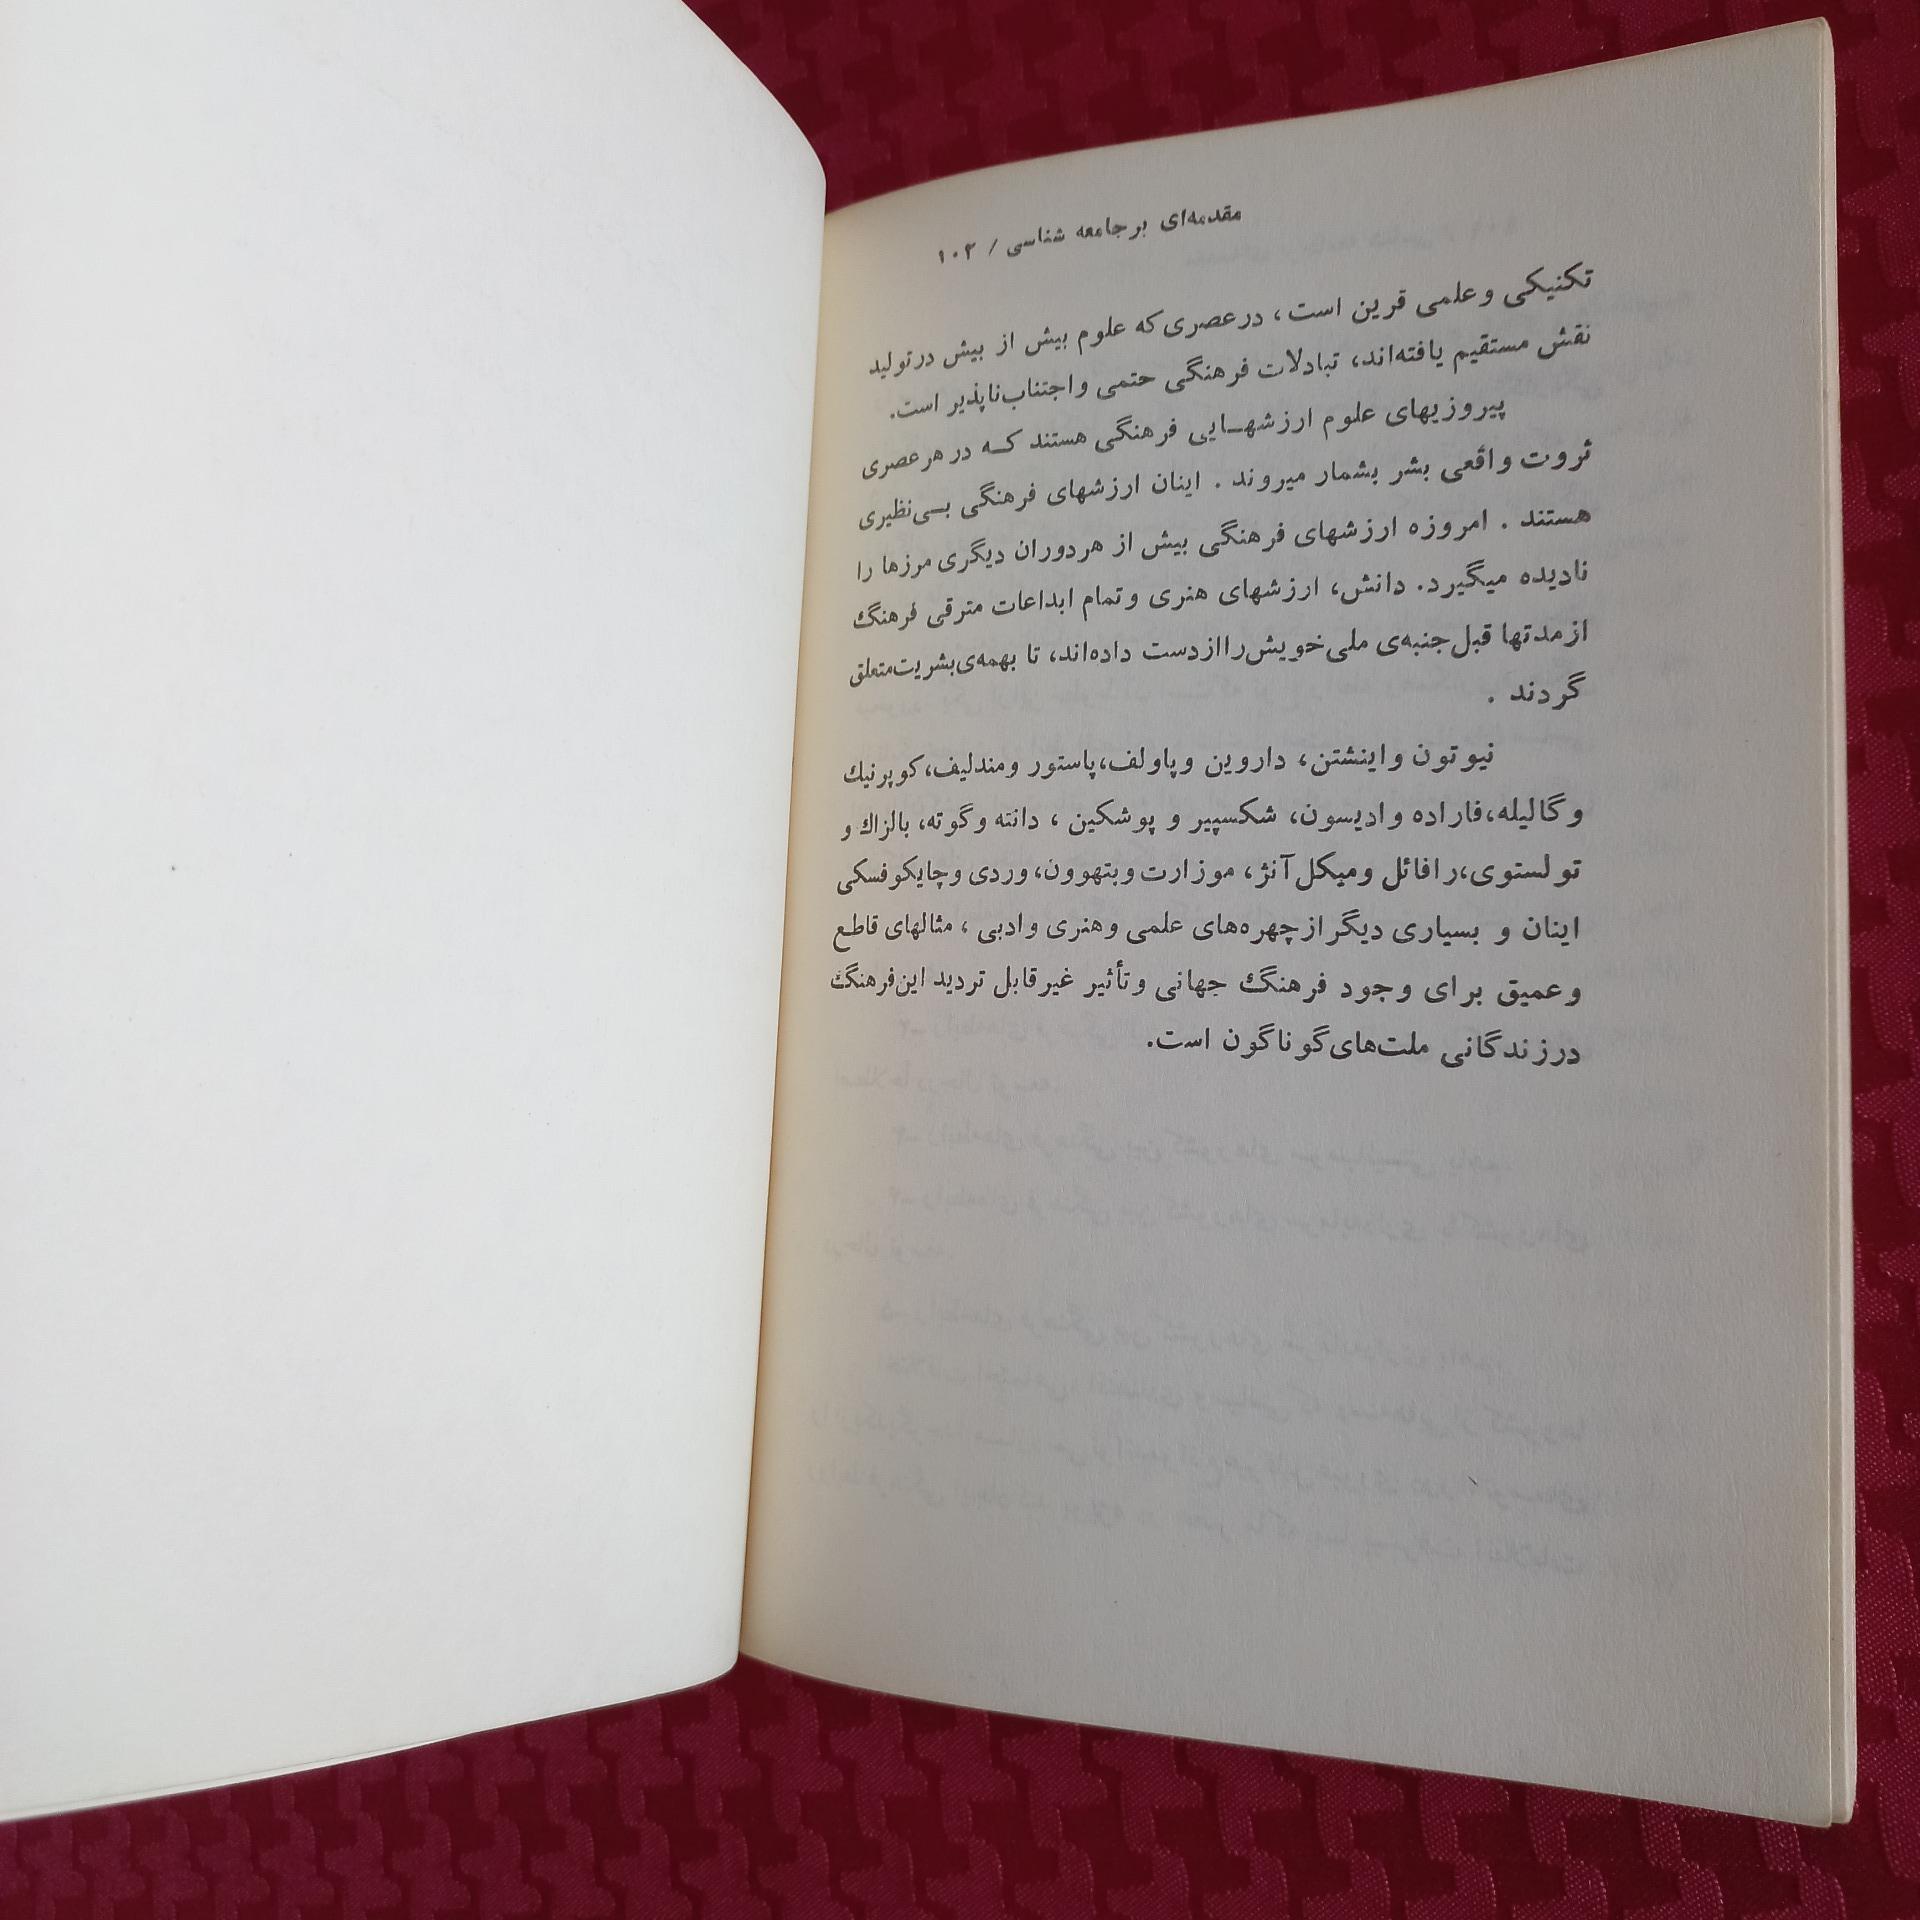 مقدمه‌ای بر جامعه شناسی / ۱۰۳
تکنیکی و علمی قرین است، در عصری که علوم بیش از بیش در تولید
نقش مستقیم یافته‌اند، تبادلات فرهنگی حتمی و اجتناب‌ناپذیر است.
پیروزیهای علوم ارزشهایی فرهنگی هستند که در هر عصری
ثروت واقعی بشر بشمار میروند . اینان ارزشهای فرهنگی بی‌نظیری
هستند . امروزه ارزشهای فرهنگی بیش از هر دوران دیگری مرزها را
نادیده میگیرد. دانش، ارزشهای هنری و تمام ابداعات مترقی فرهنگ
از مدتها قبل جنبه‌ی ملی خویش را از دست داده‌اند، تا بهمه‌ی بشریت متعلق
گردند .
نیوتون و اینشتن، داروین و پاولف، پاستور و مندلیف، کوپرنیك
و گالیله، فاراده و ادیسون، شکسپیر و پوشکین ، دانته و گوته، بالزاك و
تولستوی، رافائل و میکل آنژ، موزارت و بتهوون، وردی و چایکوفسکی
اینان و بسیاری دیگر از چهره‌های علمی و هنری و ادبی ، مثالهای قاطع
و عمیق برای وجود فرهنگ جهانی و تأثیر غیر قابل تردید این فرهنگ
در زندگانی ملت‌های گوناگون است.